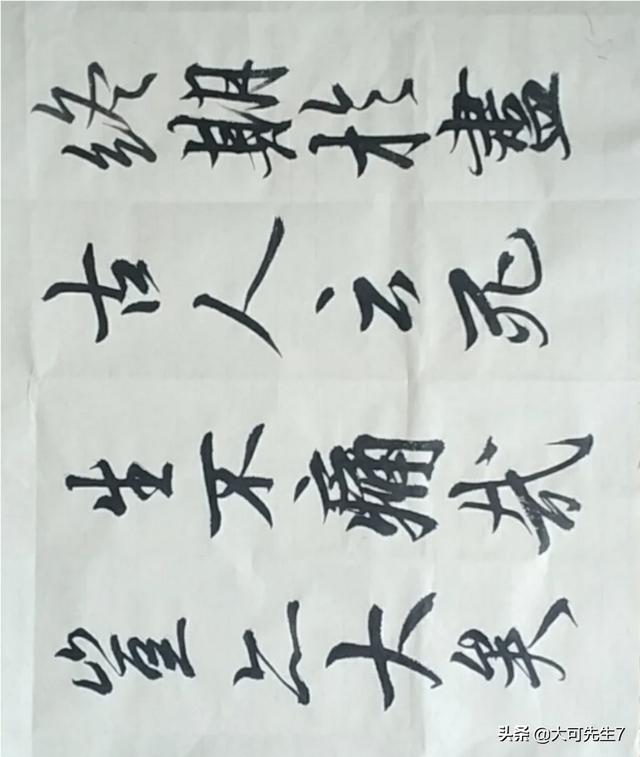 終期於盡
古人云死
生不痛哉
豈亦大矣
头条 @大可先生7